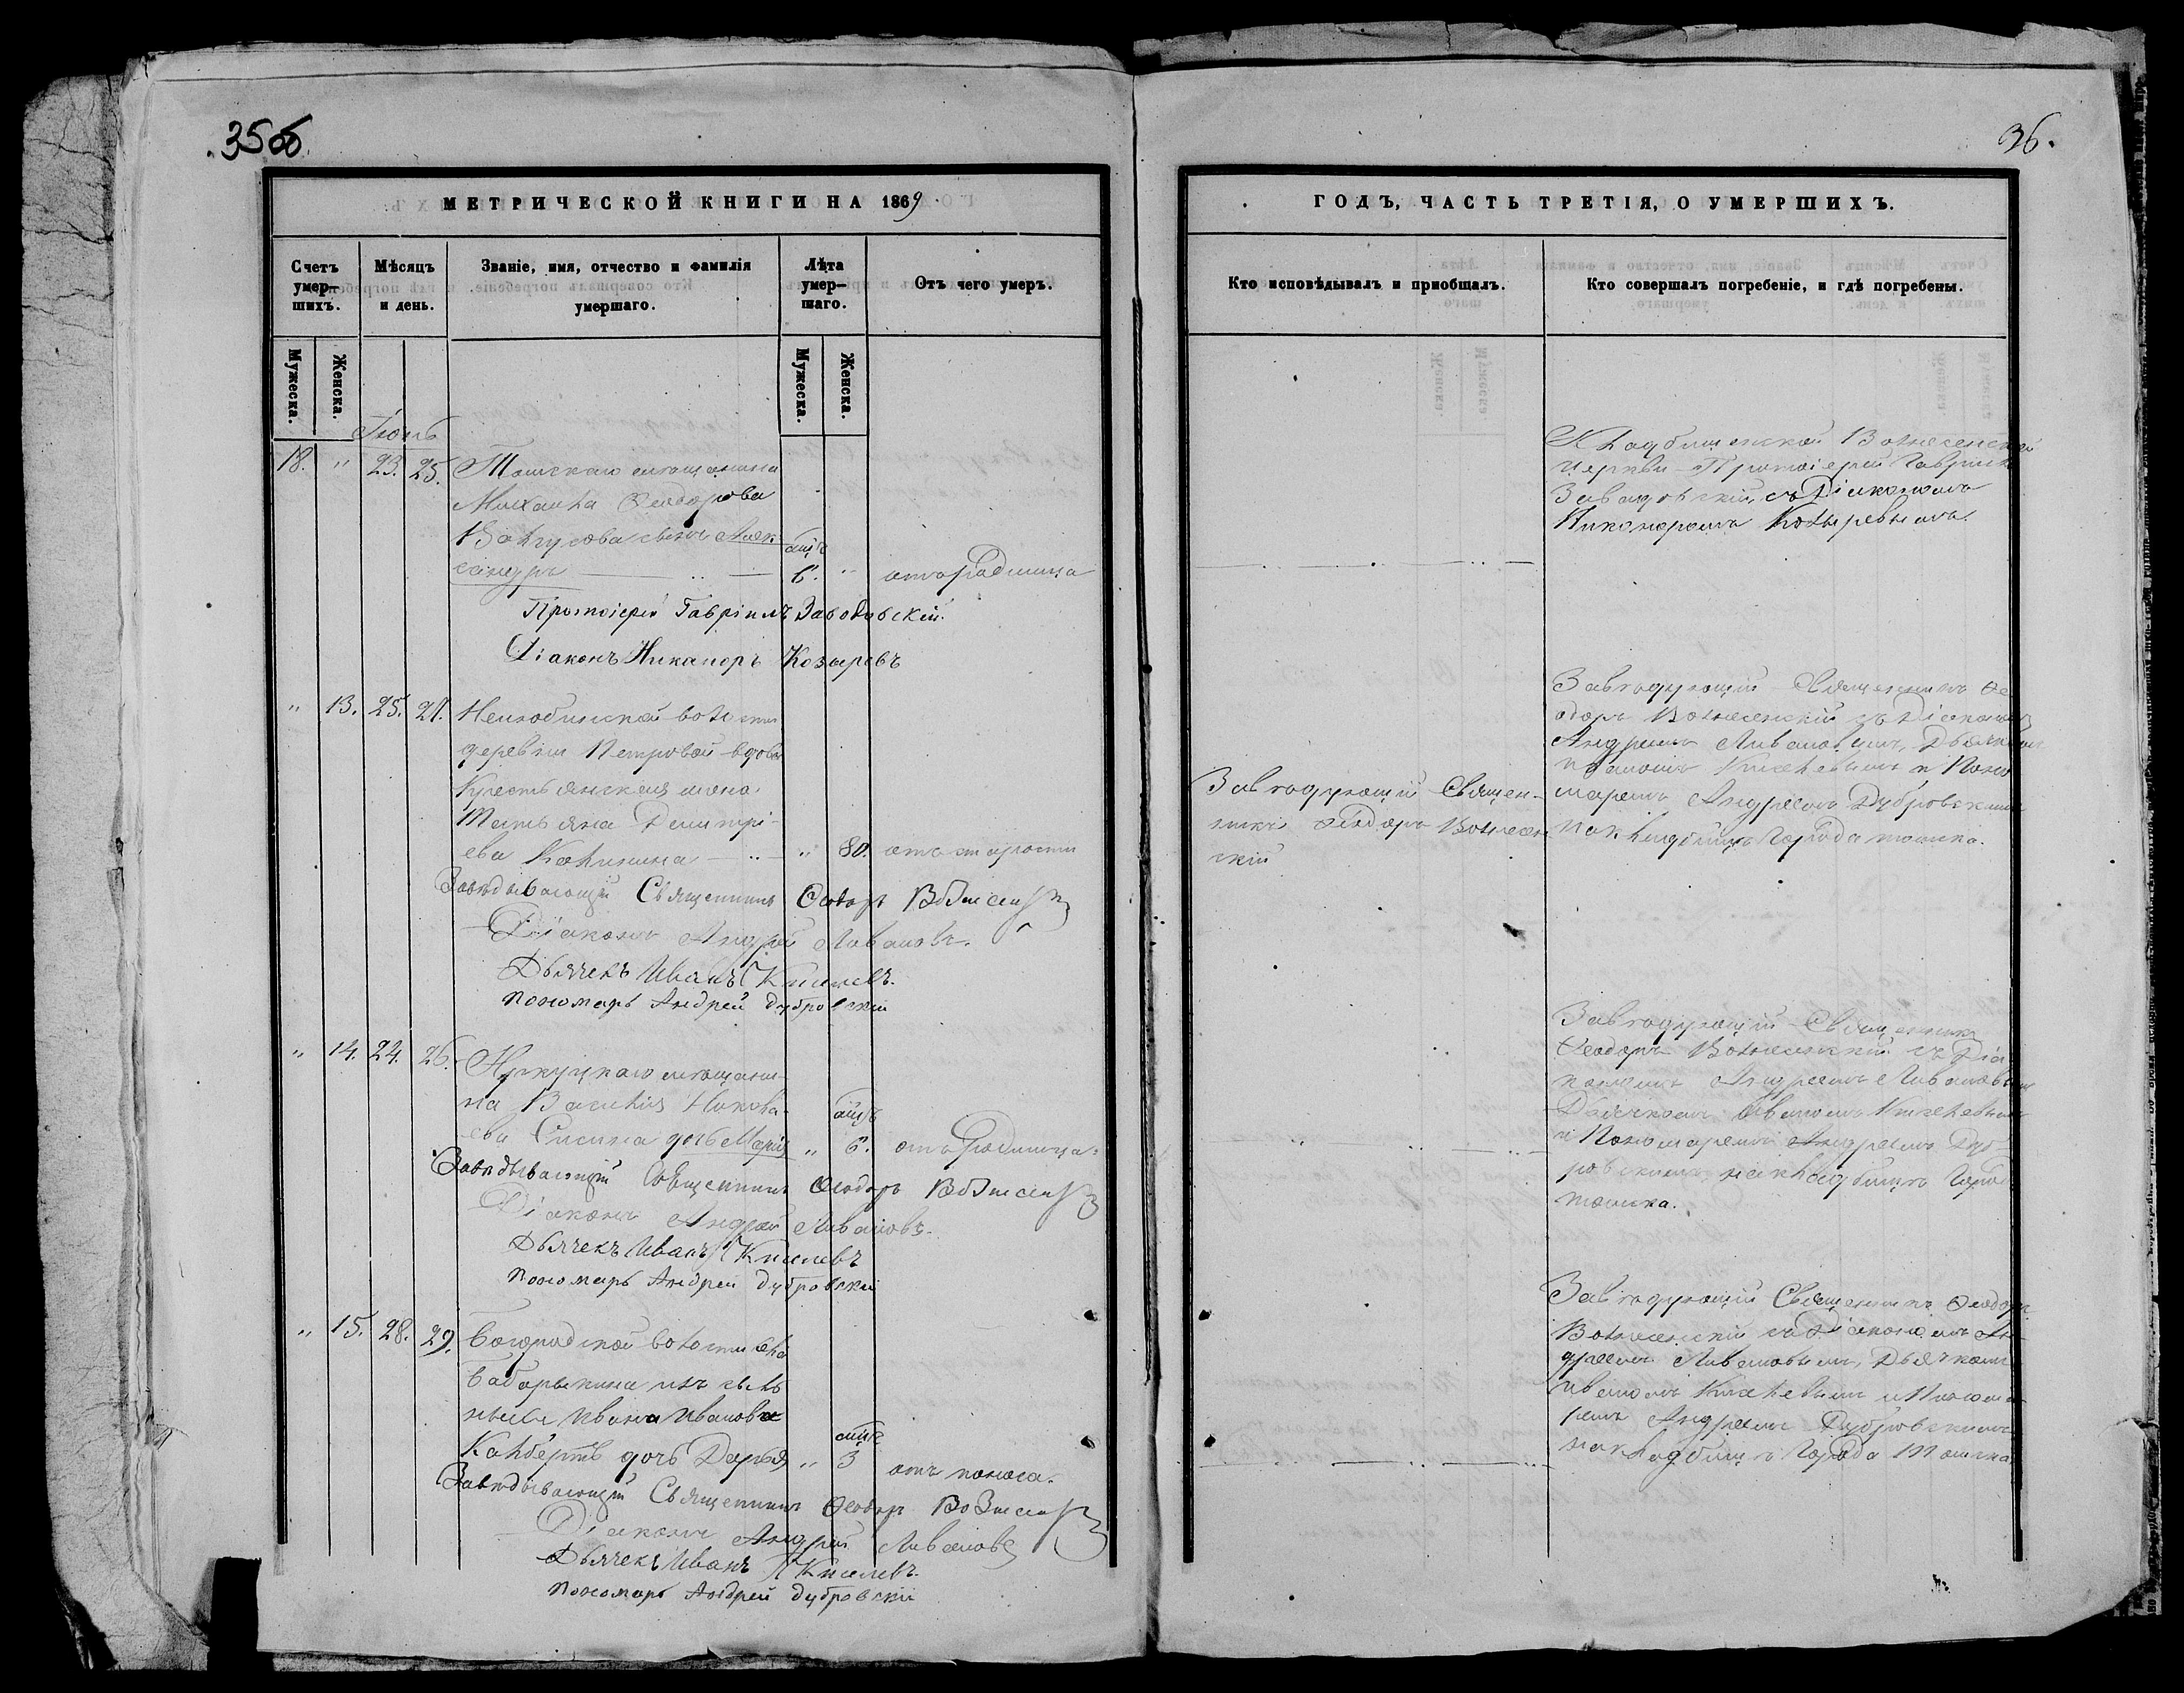 35об.
МЕТРИЧЕСКОЙ КНИГИ НА 1869
Счетъ умер-шихъ.
Мѣсяцъ и день.
Званіе, имя, отчество и фамилія умершаго.
Лѣта умер-шаго.
Отъ чего умеръ.
Мужеска.
Женска.
Мужеска.
Женска.
Іюнь
18. " 23. 25. Томскаго мѣщанина
Михаила Ѳеодорова
сынъ Алек-
сандръ 6. " отъ родимца
Протоіерей Гавріилъ Заводовскій.
Діаконъ Никаноръ Козыревъ
" 13. 25. 27. Нелюбинской волости
деревни Петровой вдова
Крестьянская жена
Татьяна Димитрі-
ева Калинина " 80. отъ старости
Завѣдывающій Священникъ Ѳеодоръ Вознесен
Діаконъ Андрей Ливановъ.
Дьячекъ Иванъ Киселевъ.
Пономарь Андрей Дубровскій
" 14. 24. 26. Иркуцкаго мѣщани-
на Василія
дочь Марія " 6. отъ родимца.
Завѣдывающій Священникъ Ѳеодоръ Вознесен
Діаконъ Андрей Ливановъ.
Дьячекъ Иванъ Киселевъ
Пономарь Андрей Дубровскій
" 15. 28. 29. Богородской волости села
Бабарыкина изъ ссыль
ныхъ Ивана Иванова
дочь Дарья " 3 отъ поноса.
Завѣдывающій Священникъ Ѳеодоръ Вознесен
Діаконъ Андрей Ливановъ
Дьячекъ Иванъ Киселевъ.
Пономарь Андрей Дубровскій
36.
ГОДЪ, ЧАСТЬ ТРЕТІЯ, О УМЕРШИХЪ.
Кто исповѣдывалъ и пріобщалъ.
Кто совершалъ погребеніе, и гдѣ погребены.
Кладбищенской Вознесенской
Церкви Протоіерей Гавріилъ
Заводовскій, съ Діакономъ
Никаноромъ Козыревымъ.
Завѣдующій Священ-
никъ Ѳеодоръ Вознесен
скій
Завѣдующій Священникъ Ѳе
одоръ Вознесенскій съ Діакономъ
Андреемъ Ливановымъ, Дьячкомъ
Иваномъ Киселевымъ и Поно
маремъ Андреемъ Дубровскимъ
на кладбищѣ города Томска.
Завѣдующій Священникъ
Ѳеодоръ Вознесенскій съ Діа
кономъ Андреемъ Ливановымъ
Дьячкомъ Иваномъ Киселевымъ
и Пономаремъ Андреемъ Дуб-
ровскимъ на кладбищѣ города
Томска.
Завѣдующій Священникъ Ѳеодоръ
Вознесенскій съ Діакономъ Ан-
дреемъ Ливановымъ, Дьячкомъ
Иваномъ Киселевымъ и Понома
ремъ Андреемъ Дубровскимъ
на кладбищѣ города Томска